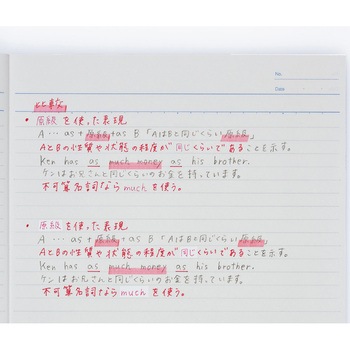 No.
Date
比較
• 原級を使った表現
A … as + 原級 + as B 「AはBと同じくらい原級」
AとBの性質や状態の程度が同じくらいであることを示す。
Ken has as much money as his brother.
ケンはお兄さんと同じくらいのお金を持っています。
不可算名詞ならmuchを使う。
• 原級を使った表現
A … as + 原級 + as B 「AはBと同じくらい原級」
AとBの性質や状態の程度が同じくらいであることを示す。
Ken has as much money as his brother.
ケンはお兄さんと同じくらいのお金を持っています。
不可算名詞ならmuchを使う。